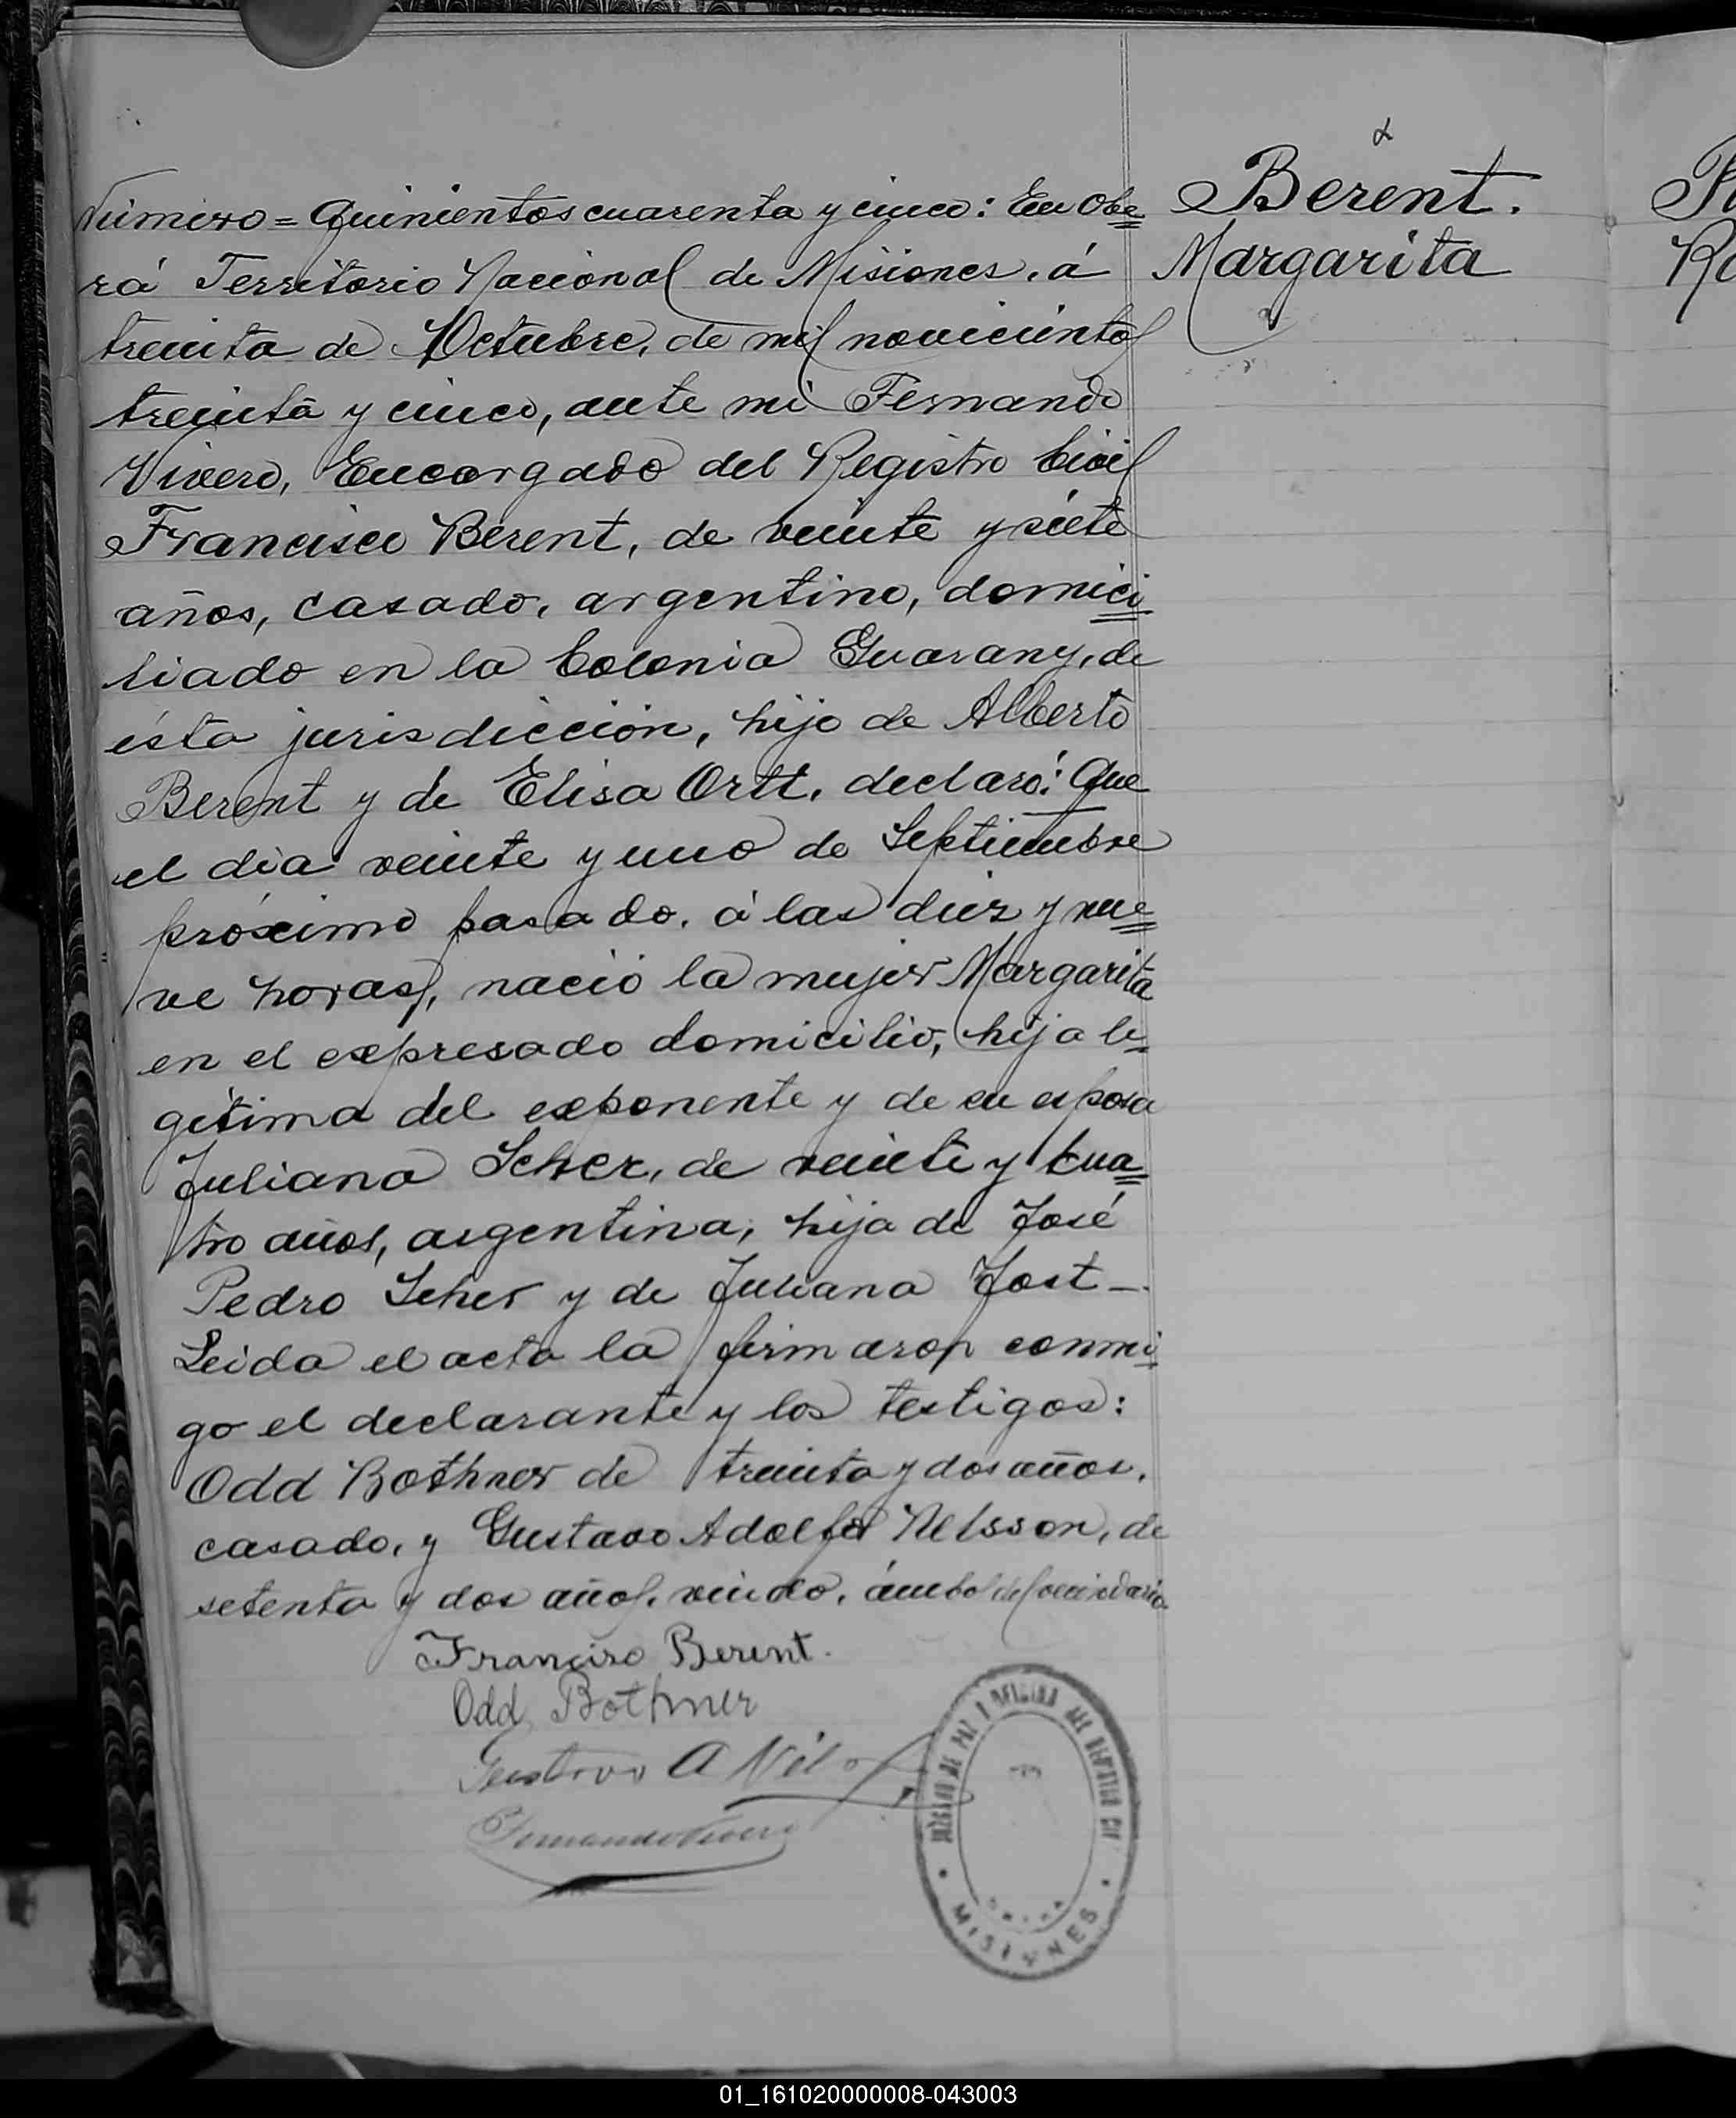 Número = Quinientos cuarenta y cinco: En Obe
rá Territorio Nacional de Misiones, á
treinta de Octubre, de mil novecientos
treinta y cinco, ante mi Fernando
Vivero, Encargado del Registro Civil
Francisco Berent, de veinte y siete
años, casado, argentino, domici
liado en la Colonia Guarany, de
ésta jurisdicción, hijo de Alberto
Berent y de Elisa Ortt, declaró: Que
el día veinte y uno de Septiembre
próximo pasado, á las diez y nue
ve horas, nació la mujer Margarita
en el expresado domicilio, hija le
gitima del exponente y de su esposa
Juliana Scher, de veinte y cua
tro años, argentina, hija de José
Pedro Scher y de Juliana Jost —.
Leida el acta la firmaron conmi
go el declarante y los testigos:
Odd Bothner de treinta y dos años,
casado, y Gustavo Adolfo Nelsson, de
setenta y dos años, viudo, ámbos del vecindario
Francisco Berent.
Odd Bothner
Gustavo A Nils
Fernando Vivero
JUZGADO DE PAZ Y OFICINA DEL REGISTRO CIVIL
MISIONES
Berent.
Margarita
01_161020000008-043003